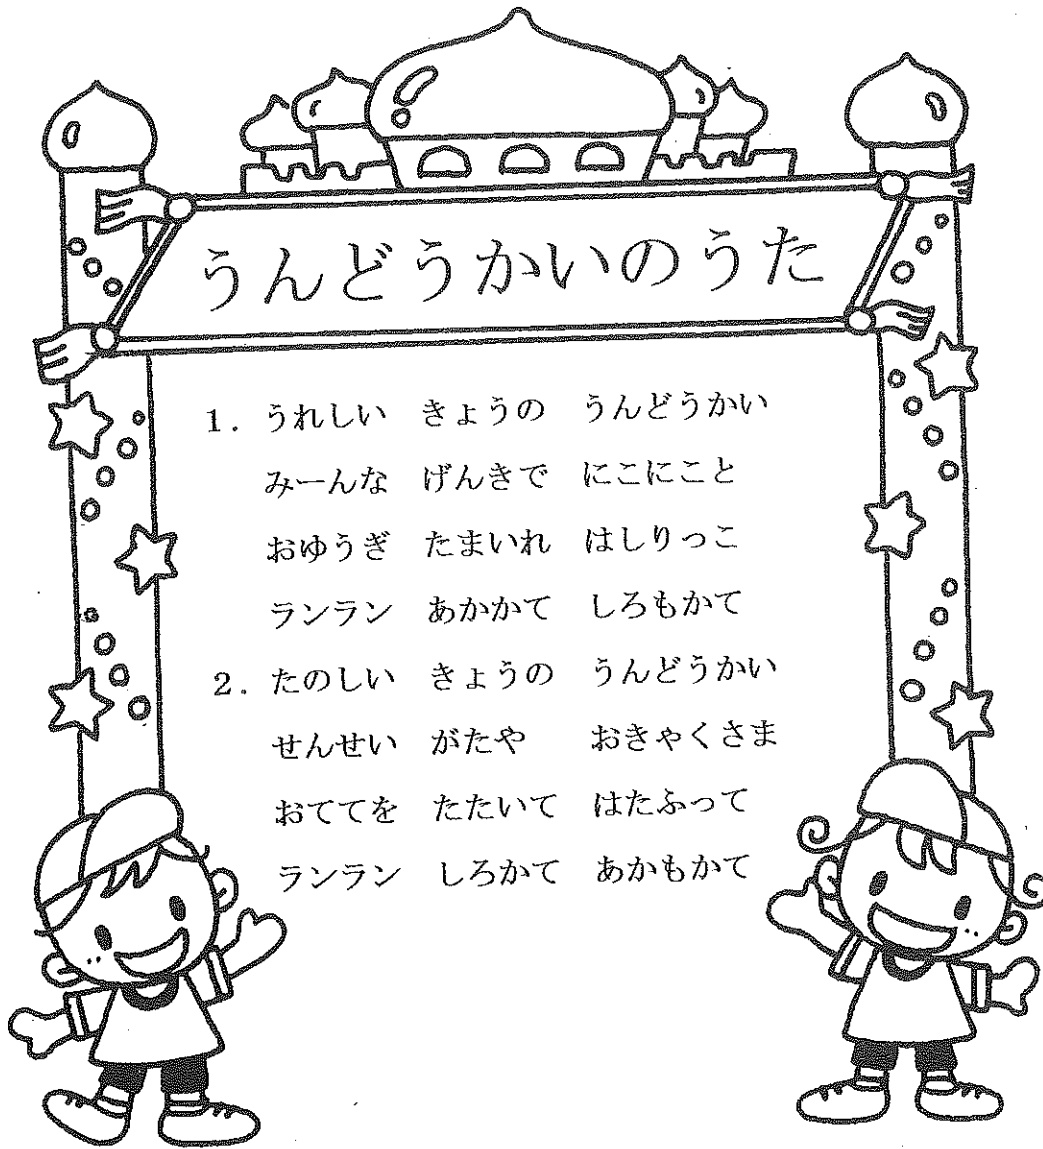 うんどうかいのうた
1. うれしい　きょうの　うんどうかい
みーんな　げんきで　にこにこと
おゆうぎ　たまいれ　はしりっこ
ランラン　あかかて　しろもかて
2. たのしい　きょうの　うんどうかい
せんせい　がたや　おきゃくさま
おててを　たたいて　はたふって
ランラン　しろかて　あかもかて